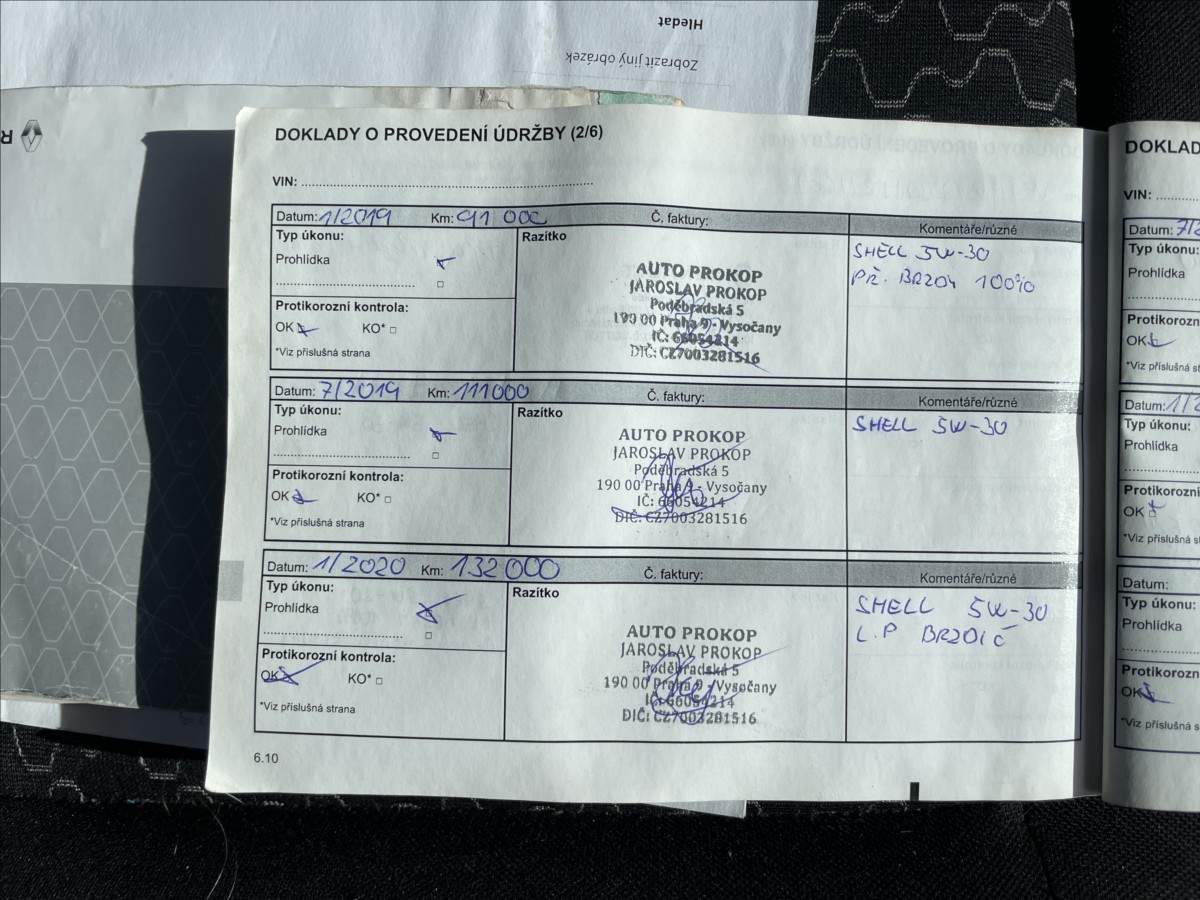 Hledat
Zobrazit jiný obrázek
R
DOKLADY O PROVEDENÍ ÚDRŽBY (2/6)
VIN:
Datum: 1/2019 Km: 91 000 Č. faktury: Komentáře/různé
Typ úkonu: Razítko
Prohlídka
Protikorozní kontrola:
OK KO*
*Viz příslušná strana
AUTO PROKOP
JAROSLAV PROKOP
Poděbradská 5
190 00 Praha 9 - Vysočany
IČ: 66054214
DIČ: CZ7003281516
SHELL 5W-30
PŘ. BRZDY 100%
Datum: 7/2019 Km: 111000 Č. faktury: Komentáře/různé
Typ úkonu: Razítko
Prohlídka
Protikorozní kontrola:
OK KO*
*Viz příslušná strana
AUTO PROKOP
JAROSLAV PROKOP
Poděbradská 5
190 00 Praha 9 - Vysočany
IČ: 66054214
DIČ: CZ7003281516
SHELL 5W-30
Datum: 1/2020 Km: 132000 Č. faktury: Komentáře/různé
Typ úkonu: Razítko
Prohlídka
Protikorozní kontrola:
OK KO*
*Viz příslušná strana
AUTO PROKOP
JAROSLAV PROKOP
Poděbradská 5
190 00 Praha 9 - Vysočany
IČ: 66054214
DIČ: CZ7003281516
SHELL 5W-30
L.P
6.10
DOKLAD
VIN:
Datum: 7/2
Typ úkonu:
Prohlídka
Protikorozn
OK
*Viz příslušná st
Datum: 1/2
Typ úkonu:
Prohlídka
Protikorozní
OK
*Viz příslušná st
Datum:
Typ úkonu:
Prohlídka
Protikorozn
OK
*Viz příslušná s